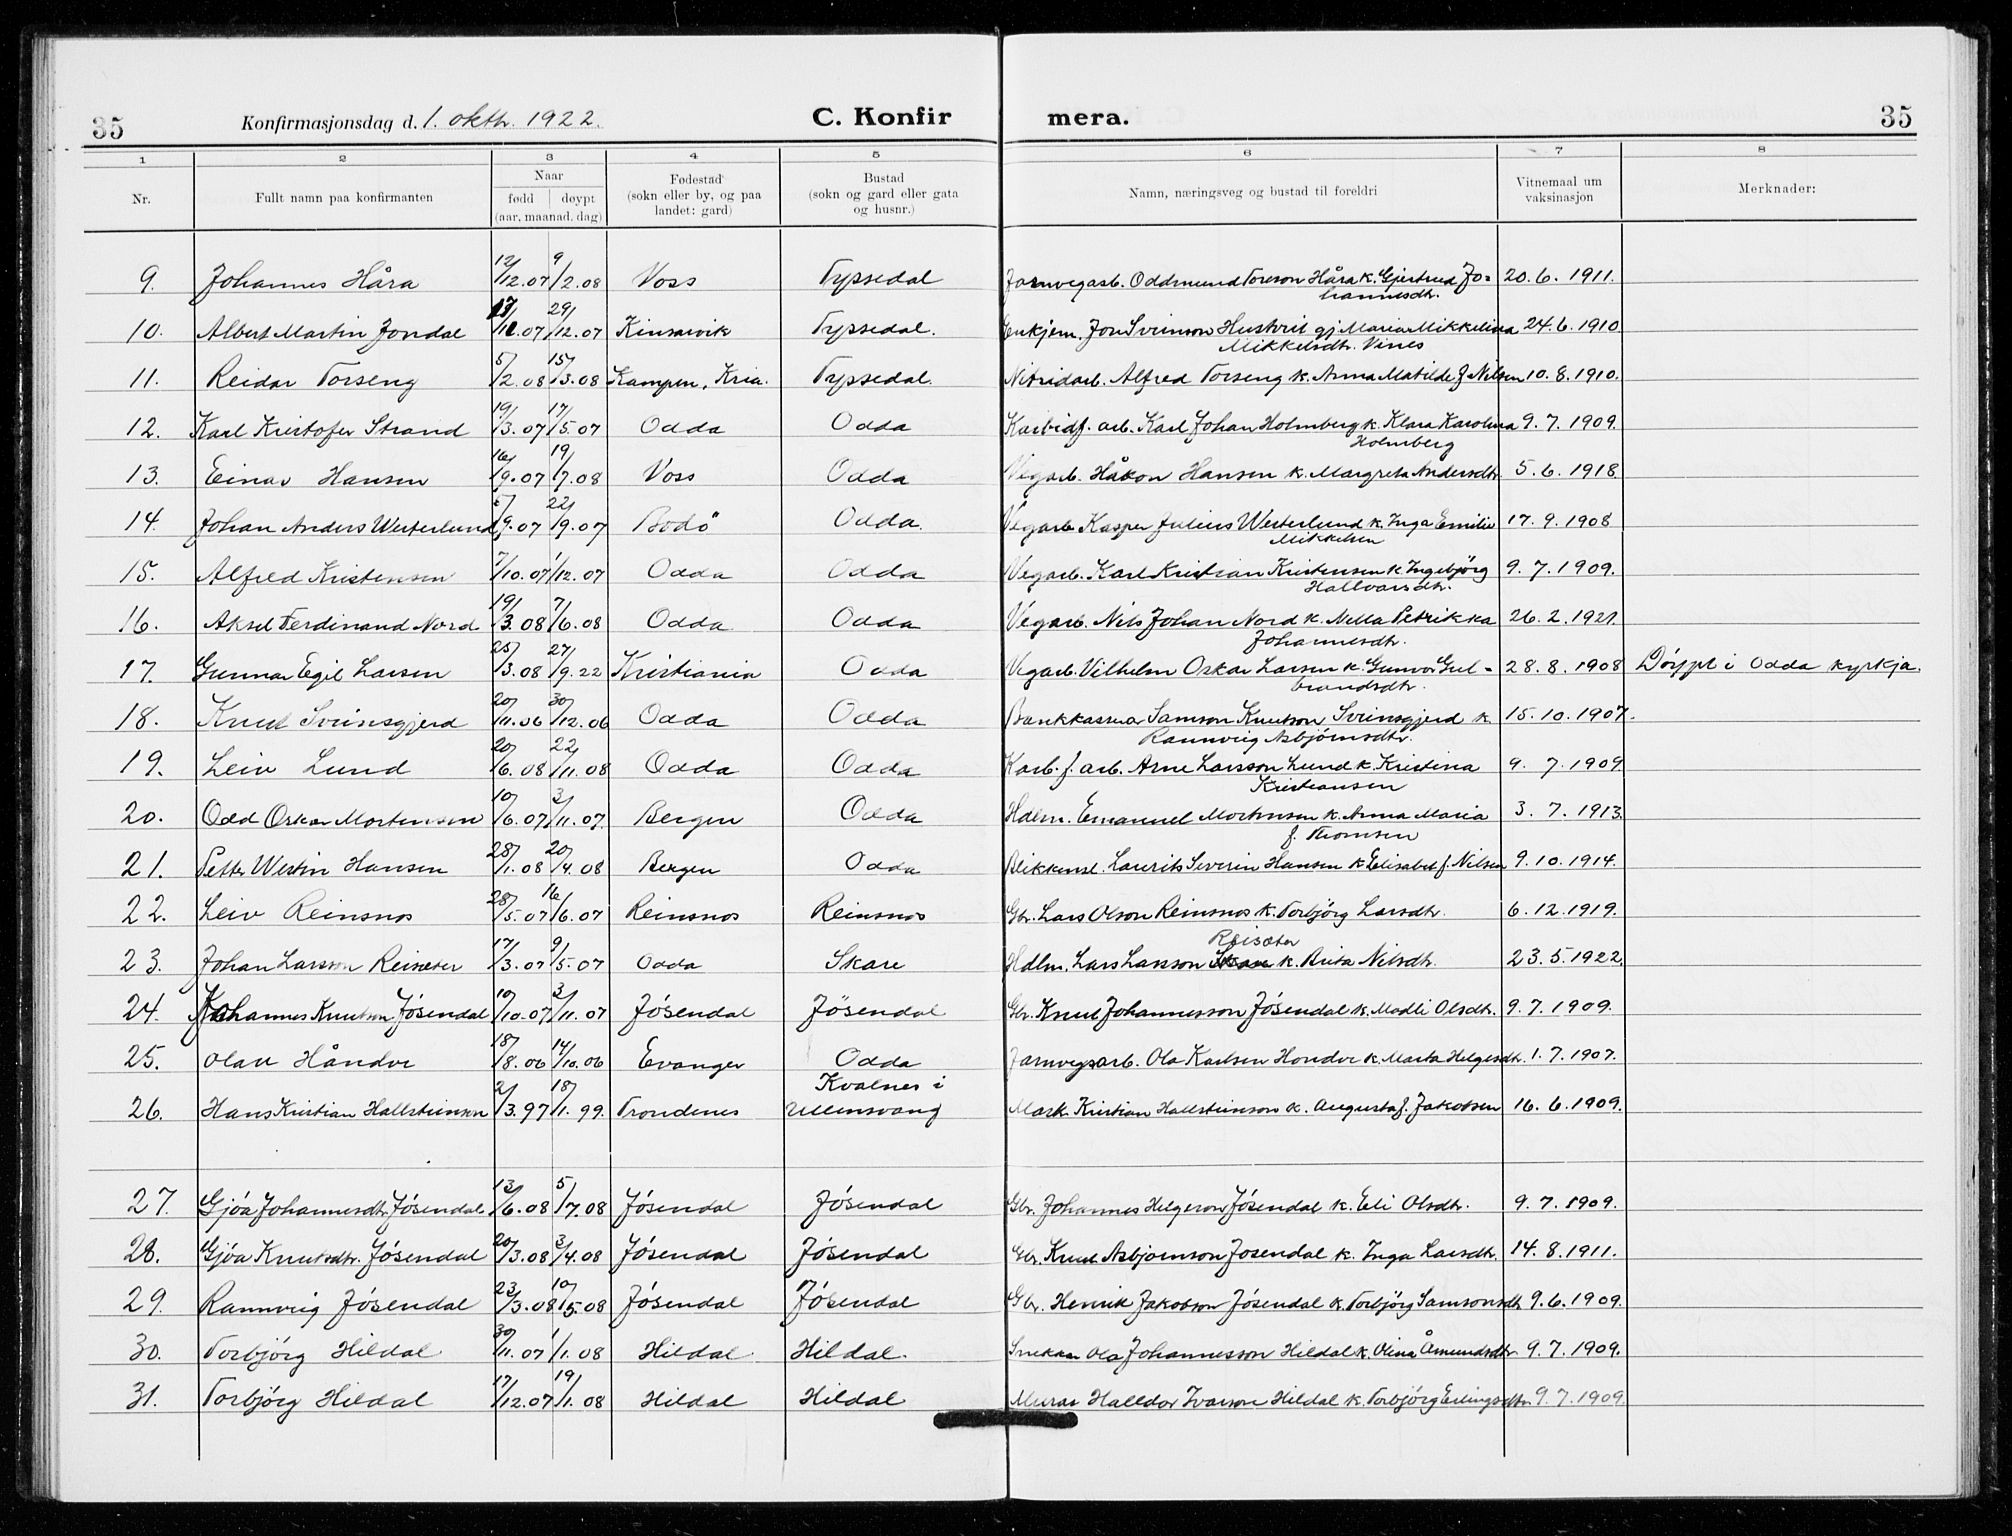 35 Konfirmasjonsdag d. 1. oktbr. 1922. C. Konfir mera. 35
1 2 3 4 5 6 7 8
Nr. Fullt namn paa konfirmanten Naar fødd døypt (aar, maanad, dag) Fødestad (sokn eller by, og paa landet: gard) Bustad (sokn og gard eller gata og husnr.) Namn, næringsveg og bustad til foreldri Vitnemaal um vaksinasjon Merknader:
9. Johannes Håra 12/12.07 9/2.08 Voss Tyssedal Jarnvegarb. Oddmund Toreson Håra k. Gjertrud Jo= 20.6.1911.
hannesdtr.
10. Albert Martin Jondal 29/12.07 Kinsarvik Tyssedal. Enkjem. Jon Sveinson Hustveit gj. Maria Mikkelina 24.6.1910
Mikkelsdtr. Vines
11. Reidar Torseng 5/2.08 15/3.08 Kampen, Kria. Tyssedal. Nitridarb. Alfred Torseng k. Anna Matilde f. Nilsen 10.8.1910.
12. Karl Kristofer Strand 19/3.07 17/5.07 Odda Odda Karbidf. arb. Karl Johan Holmberg k. Klara Karolina 9.7.1909.
Holmberg
13. Einar Hansen 16/9.07 19/7.08 Voss Odda Vegarb. Håkon Hansen k. Margreta Andersdtr. 5.6.1918.
14. Johan Anders Westerlund 5/9.07 22/9.07 Bodö Odda. Vegarb. Kasper Julius Westerlund k. Inga Emilie 17.9.1908
Mikkelsen
15. Alfred Kristensen 7/10.07 1/12.07 Odda Odda Vegarb. Karl Kristian Kristensen k. Ingebjörg 9.7.1909.
Hallvarsdtr.
16. Aksel Ferdinand Nord 19/3.08 7/6.08 Odda Odda Vegarb. Nils Johan Nord k. Nella Petrikka 26.2.1921.
Johannesdtr.
17. Gunnar Egil Larsen 25/3.08 27/9.22 Kristiania Odda Vegarb. Vilhelm Oskar Larsen k. Gunvor Gul= 28.8.1908 Döypt i Odda kyrkja.
brandsdtr.
18. Knut Sveinsgjerd 20/11.06 30/12.06 Odda Odda Bankkasserar Samson Knutson Sveinsgjerd k. 15.10.1907.
Rannveig Asbjörnsdtr.
19. Leiv Lund 20/6.08 22/11.08 Odda Odda Karb. f. arb. Arne Larsson Lund k. Kristina 9.7.1909
Kristiansen
20. Odd Oskar Mortensen 10/6.07 3/11.07. Bergen Odda Hdlm. Emanuel Mortensen k. Anna Maria 3.7.1913.
f. Thomsen
21. Petter Westin Hansen 28/1.08 20/4.08 Bergen Odda Blikkensl. Laurits Severin Hansen k. Elisabet f. Nilsen 9.10.1914.
22. Leiv Reinsnos 28/5.07 16/6.07 Reinsnos Reinsnos Gbr. Lars Olson Reinsnos k. Torbjörg Larsdtr. 6.12.1919.
Reisæter
23. Johan Larsson Reisæter 17/3.07 9/5.07 Odda Skare Hdlm. Lars Larsson Skare k. Brita Nilsdtr. 23.5.1922.
24. Johannes Knutson Jösendal 10/10.07 3/11.07 Jösendal Jösendal Gbr. Knut Johannesson Jösendal k. Madli Olsdtr. 9.7.1909.
25. Olav Håndve 18/8.06 14/10.06 Evanger Odda Jarnvegsarb. Ola Karlsen Hondve k. Marta Helgesdtr. 1.7.1907.
26. Hans Kristian Hallsteinsen 2/3.97 18/1.99. Trondenes Kvalnes i Ullensvang Mask. Kristian Hallsteinson k. Augusta f. Jakobsen 16.6.1909.
27. Gjóa Johannesdtr. Jösendal 13/6.08 5/7.08 Jösendal Jösendal Gbr. Johannes Helgeson Jösendal k. Eli Olsdtr. 9.7.1909.
28. Gjöa Knutsdtr. Jösendal 20/3.08 3/4.08 Jösendal Jösendal Gbr. Knut Asbjörnson Jösendal k. Inga Larsdtr. 14.8.1911.
29. Rannveig Jösendal 23/3.08 10/5.08 Jösendal Jösendal Gbr. Henrik Jakobson Jösendal k. Torbjörg Samsonsdtr 9.6.1909.
30. Torbjörg Hildal 30/11.07 1/1.08 Hildal. Hildal. Snekkar Ola Johannesson Hildal k. Olina Åmundsdtr. 9.7.1909.
31. Torbjörg Hildal 17/12.07 19/1.08 Hildal Hildal Murar Halldor Ivarson Hildal k. Torbjörg Erlingsdtr. 9.7.1909.